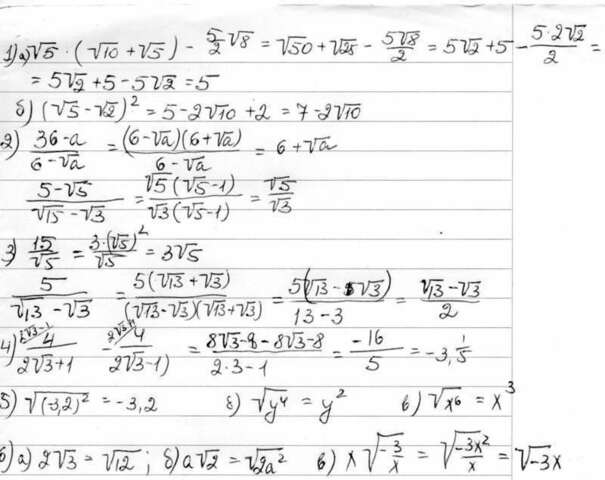 1) а) √5 · (√10 + √5) - 5/2 √8 = √50 + √25 - 5√8/2 = 5√2 + 5 - 5·2√2/2 =
= 5√2 + 5 - 5√2 = 5
б) (√5 - √2)² = 5 - 2√10 + 2 = 7 - 2√10
2) 36-a/6-√a = (6-√a)(6+√a)/6-√a = 6 + √a
5-√5/√15-√3 = √5(√5-1)/√3(√5-1) = √5/√3
3) 15/√5 = 3·(√5)²/√5 = 3√5
5/√13-√3 = 5(√13+√3)/(√13-√3)(√13+√3) = 5(√13-√3)/13-3 = √13-√3/2
4) 2√3-1/ 4/2√3+1 - 2√3+1/ 4/2√3-1) = 8√3-8-8√3-8/2·3-1 = -16/5 = -3,1/5
5) √(-3,2)² = -3,2 б) √y⁴ = y² в) √x⁶ = x³
6) а) 2√3 = √12; б) a√2 = √2a² в) x√-3/x = √-3x²/x = √-3x